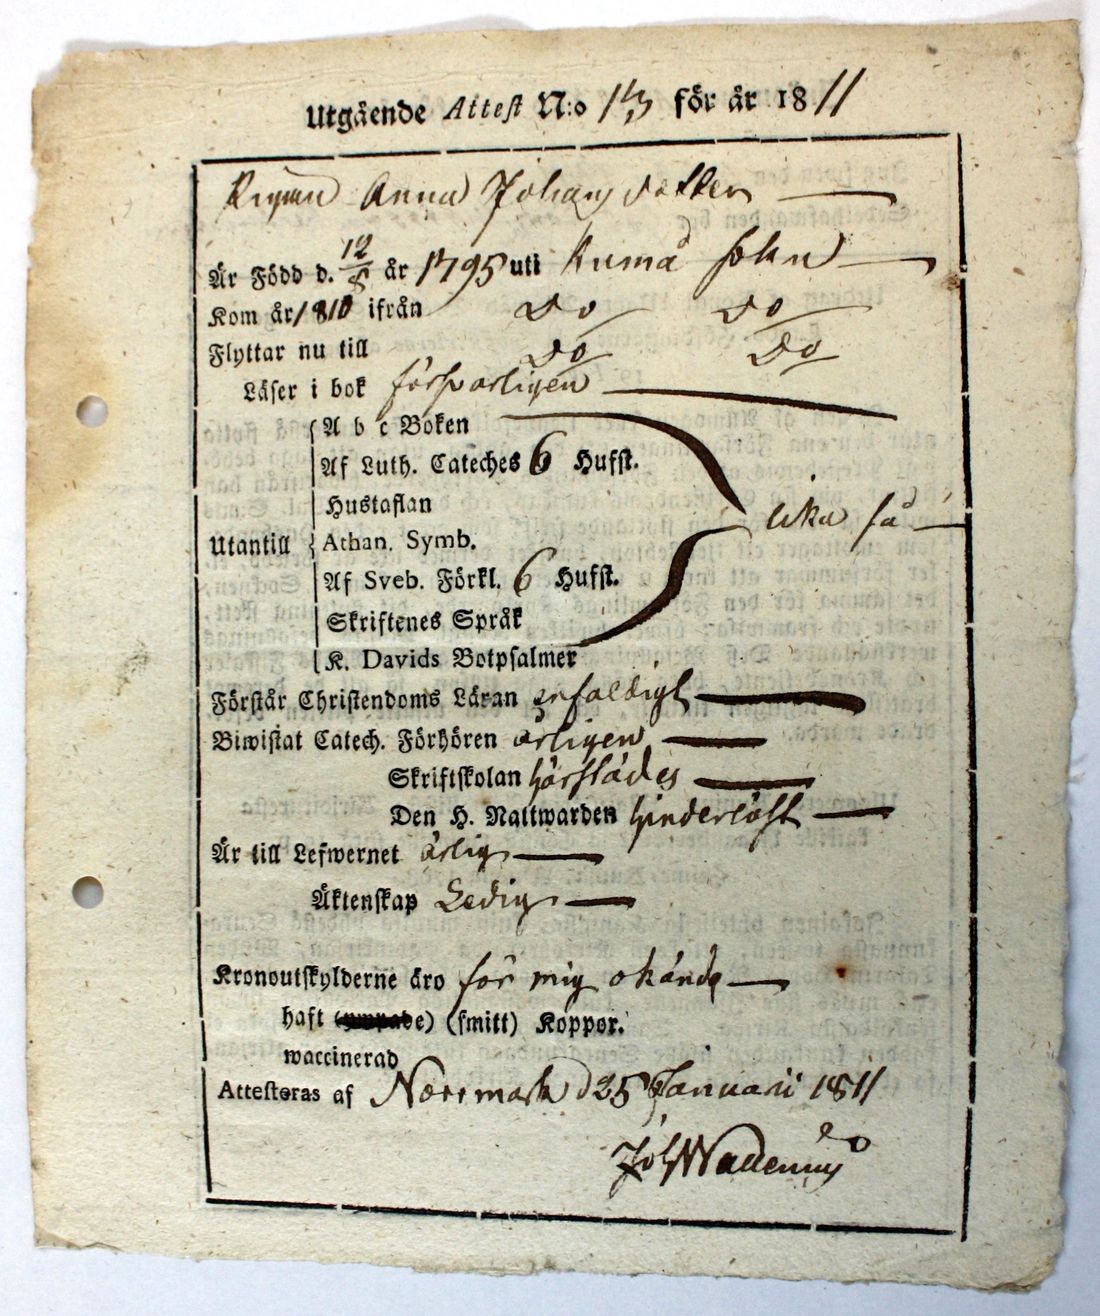 Utgående Attest N:o 13 för år 1811
Pigan Anna Johans dotter
Är Född d. 12/8 år 1795 uti Kumå sokn
Kom år 1810 ifrån Do Do
Flyttar nu till Do Do
Läser i bok försvarligen
A b c Boken
Af Luth. Cateches 6 Hufst.
Hustaflan
Utantill Athan. Symb. lika så
Af Sveb. Förkl. 6 Hufst.
Skriftenes Språk
K. Davids Botpsalmer
Förstår Christendoms Läran enfaldigt
Biwistat Catech. Förhören årligen
Skriftskolan härstädes
Den H. Nattwarden hinderlöst
Är till Lefwernet ärlig
Äktenskap Ledig
Kronoutskylderne äro för mig okände
haft (ympade) (smitt) Koppor.
waccinerad
Attesteras af Norrmark d 25 Januarii 1811
Joh Wallenius